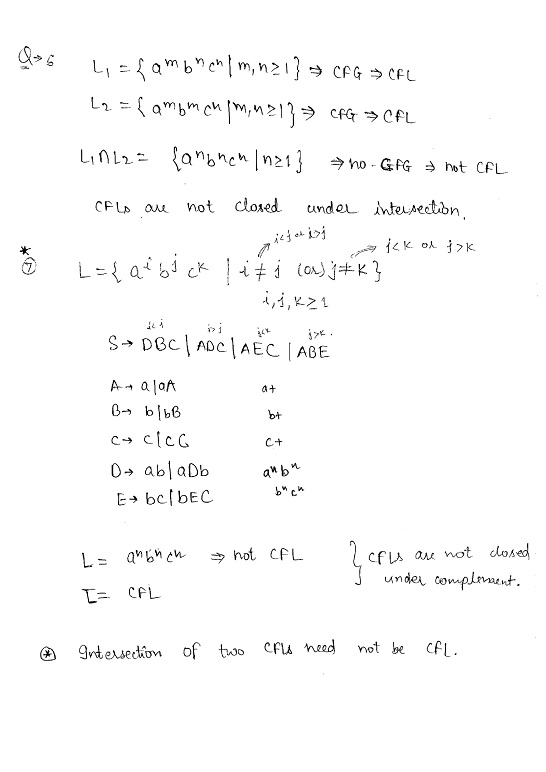 Q→ 6
L₁ = { aᵐ bⁿ cⁿ | m, n ≥ 1 } ⇒ CFG ⇒ CFL
L₂ = { aᵐ bᵐ cⁿ | m, n ≥ 1 } ⇒ CFG ⇒ CFL
L₁∩L₂ = { aⁿ bⁿ cⁿ | n ≥ 1 } ⇒ no - CFG ⇒ not CFL
CFLs are not closed under intersection.
i<j or i>j
* ⑦ L = { aⁱ bʲ cᵏ | i ≠ j (or) j ≠ k } j<k or j>k
i, j, k ≥ 1
j<i i>j j<k j>k.
S → DBC | ADC | AEC | ABE
A → a | aA a+
B → b | bB b+
C → c | cC c+
D → ab | aDb aⁿbⁿ
E → bc | bEC bⁿcⁿ
L = aⁿbⁿcⁿ ⇒ not CFL } CFLs are not closed
L̅ = CFL under complement.
⊛ Intersection of two CFLs need not be CFL.